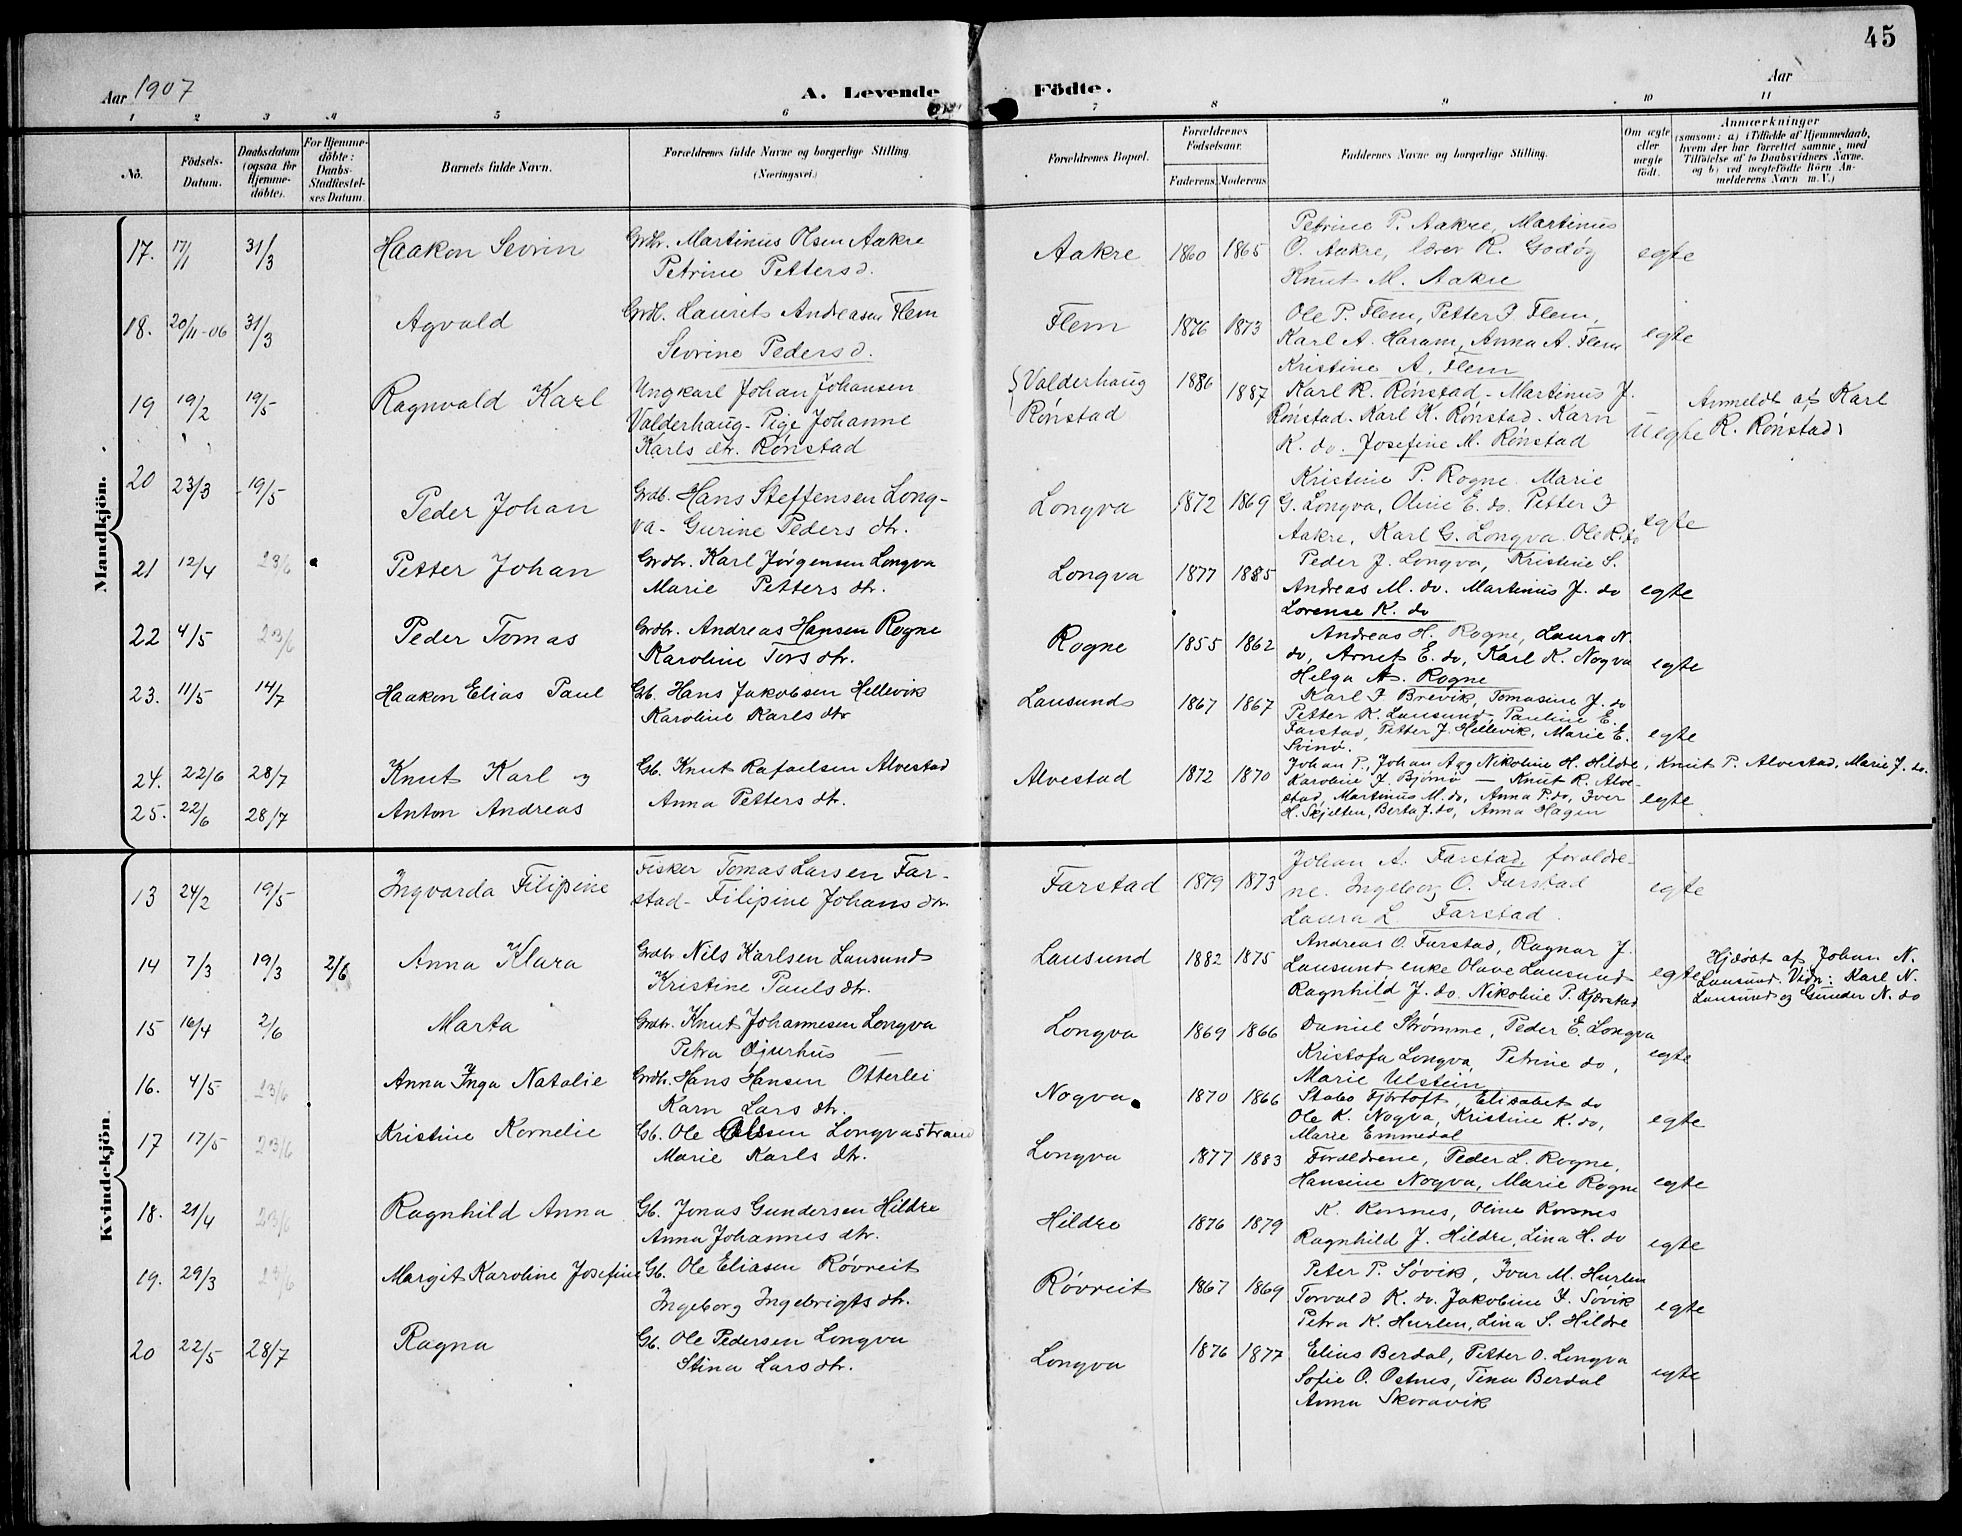 45
Aar 1907
A. Levende
Födte.
Aar
1 2 3 4 5 6 7 8 9 10 11
No.
Födsels-Datum.
Daabsdatum (ogsaa for Hjemme-döbte).
For Hjemme-döbte: Daabs-Stadfæstel-ses Datum.
Barnets fulde Navn.
Forældrenes fulde Navne og borgerlige Stilling
(Næringsvei.)
Forældrenes Bopæl.
Forældrenes Födselsaar.
Faderens. Moderens.
Faddernes Navne og borgerlige Stilling.
Om ægte eller uægte födt.
Anmærkninger
(saasom: a) i Tilfælde af Hjemmedaab,
hvem der har forrettet samme, med
Tilföielse af to Daabsvidners Navne,
og b) ved uægtefödte Börn An-
melderens Navn m. V.)
Mandkjön.
17. 17/1 31/3 Haakon Sevrin
Grdbr. Martinus Olsen Aakre
Petrine Pettersd.
Aakre 1860 1865
Petrine P. Aakre, Martinus
O. Aakre, R. Godøy
Knut M. Aakre
egte
18. 20/11-06 31/3 Agvald
Grdb. Laurits Andreasen Flem
Sevrine Pedersd.
Flem 1876 1873
Ole P. Flem, Petter J. Flem,
Karl A. Haram, Anna A. Flem
Kristine A. Flem
egte
19 19/2 19/5 Ragnvald Karl
Ungkarl Johan Johansen
Valderhaug - Pige Johanne
Karls dtr. Rønstad
Valderhaug
Rønstad
1886 1887
Karl R. Rønstad - Martinus J.
Rønstad. Karl K. Rønstad. Karn
K. do. Josefine M. Rønstad
Uegte
Anmeldt af Karl
R. Rønstad
20 23/3 19/5 Peder Johan
Grdb. Hans Steffensen Long-
va - Gurine Peders dtr.
Longva 1872 1869
Kristine P. Rogne. Marie
G. Longva, Oline E. do. Petter J
Aakre, Karl G. Longva. Ole R. do
egte
21 12/4 23/6 Petter Johan
Grdbr. Karl Jørgensen Longva
Marie Petters dtr.
Longva 1877 1885
Peder J. Longva, Kristine S.
Andreas M. do. Martinus J. do
Lorense K. do
egte
22 4/5 23/6 Peder Tomas
Grdbr. Andreas Hansen Rogne
Karoline Tors dtr.
Rogne 1855 1862
Andreas H. Rogne, Laura N.
do, Arnet E. do, Karl K. Nogva
Helga A. Rogne
egte
23. 11/5 14/7 Haakon Elias Paul
Gb. Hans Jakobsen Hellevik
Karoline Karls dtr
Lausunds 1867 1867
Karl J Brevik, Tomasine J. do
Petter K. Lausund, Pauline E.
Farstad, Petter J. Hellevik, Marie E.
Svinø.
egte
24. 22/6 28/7 Knut Karl og
25. 22/6 28/7 Anton Andreas
Gb. Knut Rafaelsen Alvestad
Anna Petters dtr.
Alvestad 1872 1870
Johan P, Johan A og Nikoline H. Hildre, Knut P. Alvestad, Marie J. do.
Karoline J. Bjørnø — Knut R. Alve-
stad, Martinus M. do, Anna P. do, Iver
H. Skjelten, Berta J. do, Anna Hagen
egte
Kvindekjön
13 24/2 19/5 Ingvarda Filipine
Fisker Tomas Larsen Far-
stad - Filipine Johans dtr.
Farstad 1879 1873
Johan A. Farstad, foraldre-
ne. Ingeborg O. Farstad
Laura L Farstad.
egte
14 7/3 19/3 2/6 Anna Klara
Grdbr Nils Karlsen Lausund
Kristine Pauls dtr.
Lausund 1882 1875
Andreas O. Farstad, Ragnar J.
Lausund enke Olave Lausund
Ragnhild J. do. Nikoline P. Kjerstad
egte
Hjdøbt af Johan N.
Lausund. Vidn: Karl N.
Lausund og Gunder N. do
15 16/4 2/6 Marta
Grdbr. Knut Johannesen Longva
Petra Gjurhus
Longva 1869 1866
Daniel Strømme, Peder E. Longva
Kristofa Longva, Petrine do,
Marie Ulstein
egte
16. 4/5 23/6 Anna Inga Natalie
Grdb. Hans Hansen Otterlei
Karn Lars dtr.
Nogva 1870 1866
Fjørtoft, Elisabet do
Ole K. Nogva, Kristine K. do,
Marie Emmedal
egte
17 17/5 23/6 Kristine Kornelie
Gb. Ole Olsen Longvastrand
Marie Karls dtr.
Longva 1877 1883
Foraldrene, Peder L. Rogne,
Hansine Nogva, Marie Rogne
egte
18. 21/4 23/6 Ragnhild Anna
Gb. Jonas Gundersen Hildre
Anna Johannes dtr.
Hildre 1876 1879
K. Korsnes, Oline Korsnes
Ragnhild J. Hildre, Lina H. do
egte
19. 29/3 23/6 Margit Karoline Josefine
Gb. Ole Eliasen Røvreit
Ingeborg Ingebrigts dtr.
Røvreit 1867 1869
Peter P. Søvik, Ivar M. Hurlen
Torvald K. do. Jakobine J. Søvik
Petra K. Hurlen, Lina S. Hildre
egte
20 22/5 28/7 Ragna
Gb. Ole Pedersen Longva
Stina Lars dtr.
Longva 1876 1877
Elias Berdal, Petter O. Longva
Sofie O. Østnes, Tina Berdal
Anna Skoravik
egte